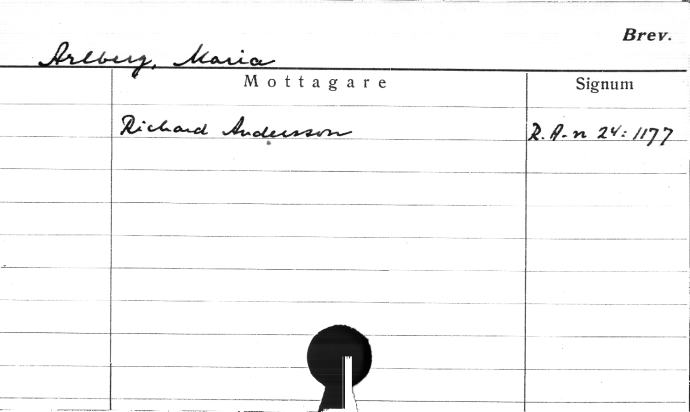 Brev.
Arlberg, Maria
Mottagare Signum
Richard Andersson R. A-n 24: 1177